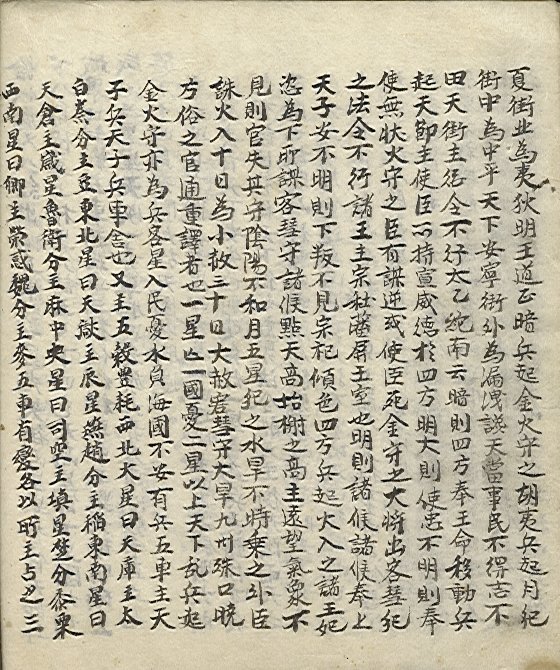 夏街北為夷狄明王道正暗兵起金火守之胡夷兵起月犯
街中為中平天下安寧街外為漏洩讒天當事民不得志不
田天街主徑令不行太乙統南云暗則四方奉王命移動兵
起天節主使臣以持宣威德於四方明大則使忠不明則奉
使無狀火守之臣有謀逆或使臣死金守之大將出客彗犯
之法令不行諸王主宗社藩屏王室也明則諸候諸候奉上
天子安不明則下叛不見宗祀傾危四方兵起火入之諸王妃
恣為下所謀客彗守諸候黜天高抬榭之高主遠望氣象不
見則官失其守陰陽不和月五星犯之水旱不時乗之外臣
誅火入十日為小赦三十日大赦客彗守大旱九州殊口曉
方俗之官通重譯者也一星亡一國憂二星以上天下乱兵起
金火守亦為兵客星入民憂水負海國不安有兵五車主天
子兵天子兵車舍也又主五穀豊耗西北大星曰天庫主太
白秦分主豆東北星曰天獄主辰星燕趙分主稻東南星曰
天倉主歲星魯衛分主麻中央星曰司空主填星楚分黍粟
西南星曰卿主熒惑魏分主麥五車有變各以所主占之三